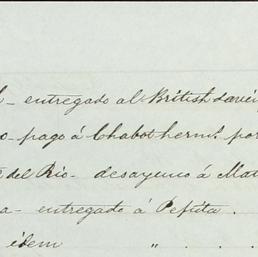 entregado al British
pago á Chabot herm.ˢ por
del Rio - desayuno á Mat
a - entregado á Pepita .
idem " . .